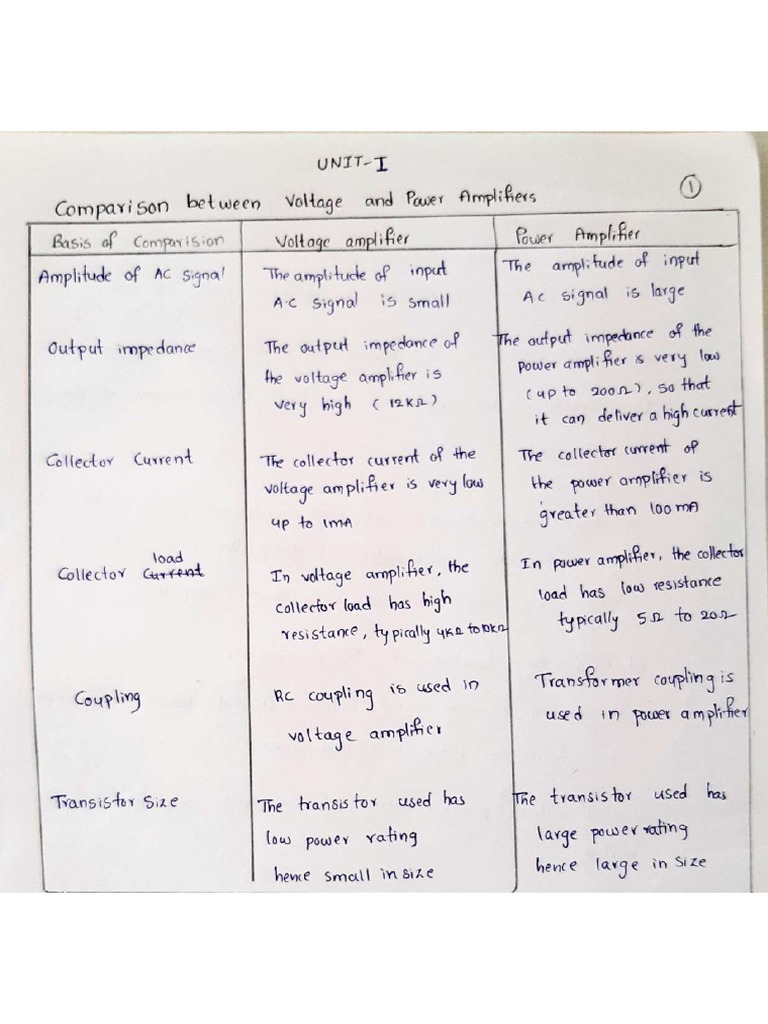 UNIT-I
①
Comparison between Voltage and Power Amplifiers
Basis of Comparision
Voltage amplifier
Power Amplifier
Amplitude of AC Signal
The amplitude of input
A.C signal is small
The amplitude of input
AC signal is large
Output impedance
The output impedance of
the voltage amplifier is
very high (12KΩ)
The output impedance of the
power amplifier is very low
(up to 200Ω), so that
it can deliver a high current
Collector Current
The collector current of the
voltage amplifier is very low
up to 1mA
The collector current of
the power amplifier is
greater than 100mA
load
Collector Current
In voltage amplifier, the
collector load has high
resistance, typically 4KΩ to 10KΩ
In power amplifier, the collector
load has low resistance
typically 5Ω to 20Ω
Coupling
RC coupling is used in
voltage amplifier
Transformer coupling is
used in power amplifier
Transistor Size
The transistor used has
low power rating
hence small in size
The transistor used has
large power rating
hence large in size